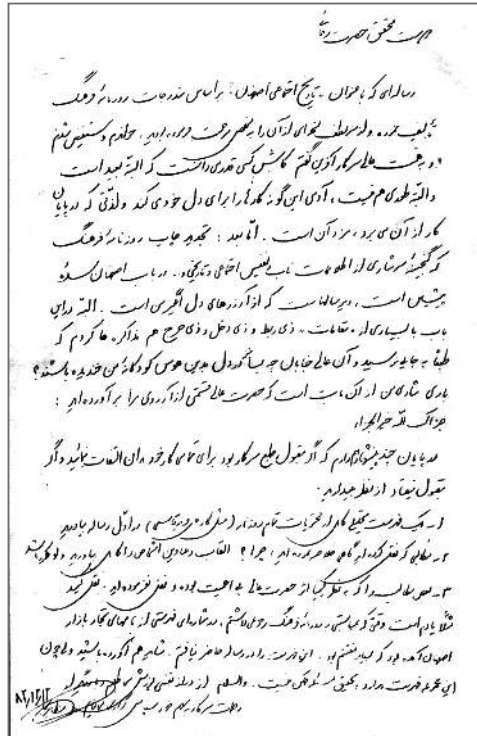 محقق حضرت
رساله‌ای که با عنوان «تاریخ اجتماعی اصفهان» براساس مندرجات روزنامه فرهنگ
تألیف و از سر لطف نسخه‌ای از آن را به مخلص مرحمت فرموده بودید، خواندم و مستفیض شدم
و به همت عالی سرکار آفرین گفتم کاش کسی قدری دانست که البته بعید است
و البته طوری هم نیست، آدمی این گونه کارها را برای دل خود می کند و لذتی که در پایان
کار از آن می برد، مزد آن است. اما بعد: تجدید چاپ روزنامه فرهنگ
که گنجینه سرشاری از اطلاعات ناب نفیس اجتماعی و تاریخی در باب اصفهان سده
پیشین است، دیر سالهاست که از آرزوهای دل اقل است. البته در این
باب با بسیاری از مقامات ذی ربط و ذی دخل و ذی خرج هم مذاکره ها کردم که
طبعاً به جایی نرسید و آن عالی جنابان چه بسا که در دل بدین هوس کودکانه من خندیده باشند؟
باری شادی من از آن بابت است که حضرت عالی قسمتی از آن آرزوی مرا برآورده اید:
جزاک الله خیر الجزاء
در پایان چند پیشنهاد دارم که اگر مقبول طبع سرکار بود برای تمامی کار خودتان التفات نمائید و اگر
مقبول نیفتاد از نظر بیندازید.
۱- یک فهرست تحلیلی کلی از محتویات تمام روزنامه در اول رساله بیاورید
۲- مطالبی که نقل کرده اید گاهی خلاصه کرده اید، چرا؟ القاب و عناوین اشخاص را کامل بیاورید
۳- بعضی مطالب را که به نظر حضرت عالی بی اهمیت بوده و نقل نفرموده اید نقل کنید
مثلاً یادم است وقتی که به مناسبتی به روزنامه فرهنگ رجوعی داشتم، در شماره ای فهرستی از نامهای تجار بازار
اصفهان آمده بود که بسیار مغتنم بود. این فهرست را در رساله حاضر نیافتم. شاید هم آورده باشید ولی چون
این مجموعه فهرست ندارد، تحقیق مسئله ممکن نیست. والسلام
۸۲/۱۲/۱۲